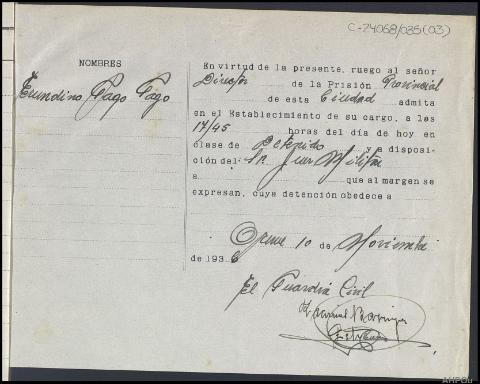 C-24068/035(03)
NOMBRES
Eundino Pago Pago
En virtud de la presente, ruego al señor
Director de la Prisión Provincial
de esta Ciudad admita
en el Establecimiento de su cargo, a las
17/45 horas del día de hoy en
clase de Detenido y a disposi-
ción del Sr. Juez Militar
a que al margen se
expresan, cuye detención obedece a
Orense 10 de Noviembre
de 1936
El Guardia Civil
AHPOu